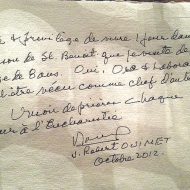 & privilège de vivre 1 jour dans
de St. Benoit que je visite de
8 ans. Oui, Ora & Labora
être vécu comme chef d'entre
Union de prières chaque
jour à l'Eucharistie
J. Robert OUIMET
Octobre 2012.